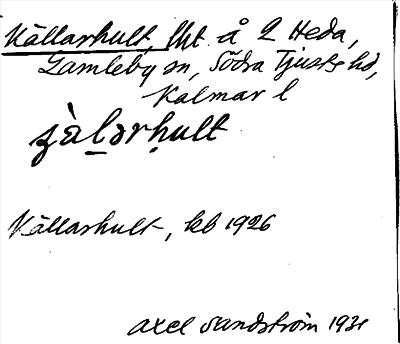 Källarhult, lht å 2 Heda,
Gamleby sn, Södra Tjusts hd,
Kalmar l
Källarhult, kb 1926
Axel Sandström 1931